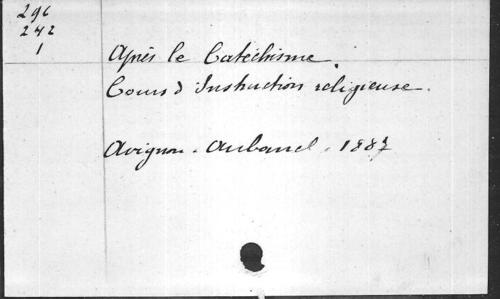 296
242
1
Après le Catéchisme.
Cours d'Instruction religieuse.
Avignon - Aubanel - 1887